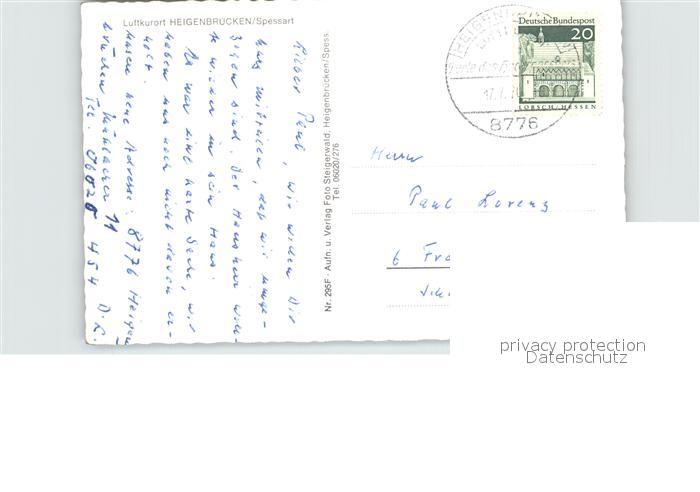 Luftkurort HEIGENBRÜCKEN/Spessart
Lieber Paul, wir wollen Dir
kurz mitteilen, daß wir umge-
zogen sind. Der Hausherr woll-
te wieder in sein Haus.
Es war eine harte Sache, wir
haben uns noch nicht davon er-
holt.
unsere neue Adresse: 8776 Heigen
brücken 11
Tel. 06020 454 D.L.
Nr. 295F · Aufn. u. Verlag Foto Steigerwald, Heigenbrücken/Spess.
Tel. 06020/276
Deutsche Bundespost
20
LORSCH/HESSEN
8776
Herrn
Paul Lorenz
6 Fra
privacy protection
Datenschutz